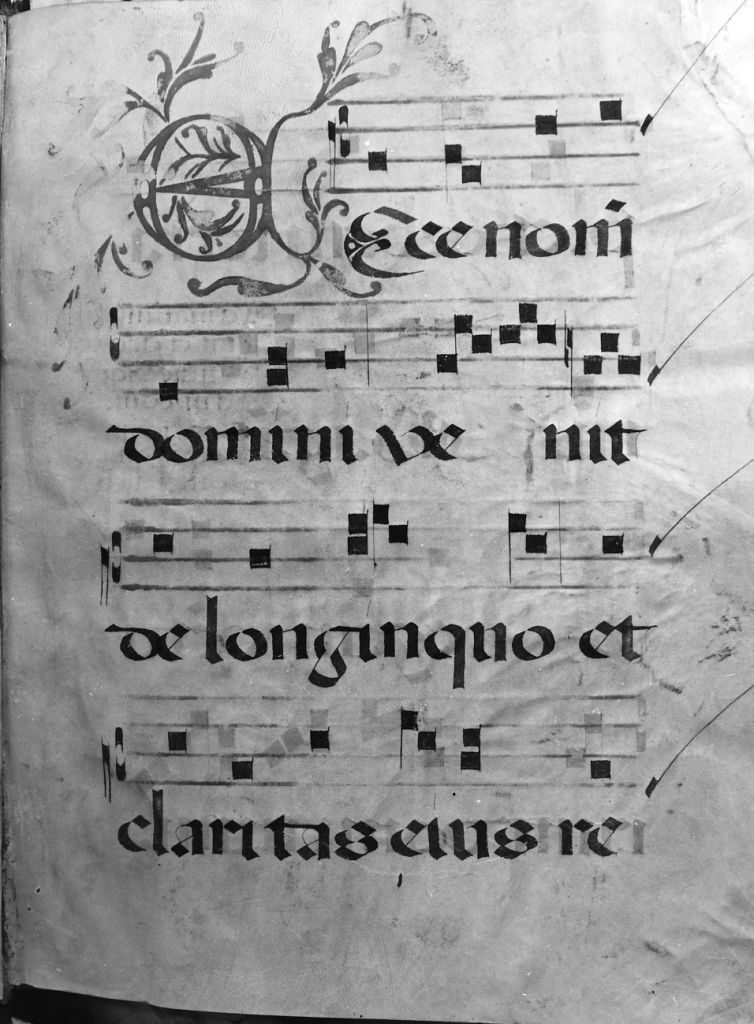 Ecce nom̄
domini ve nit
de longinquo et
claritas eius re